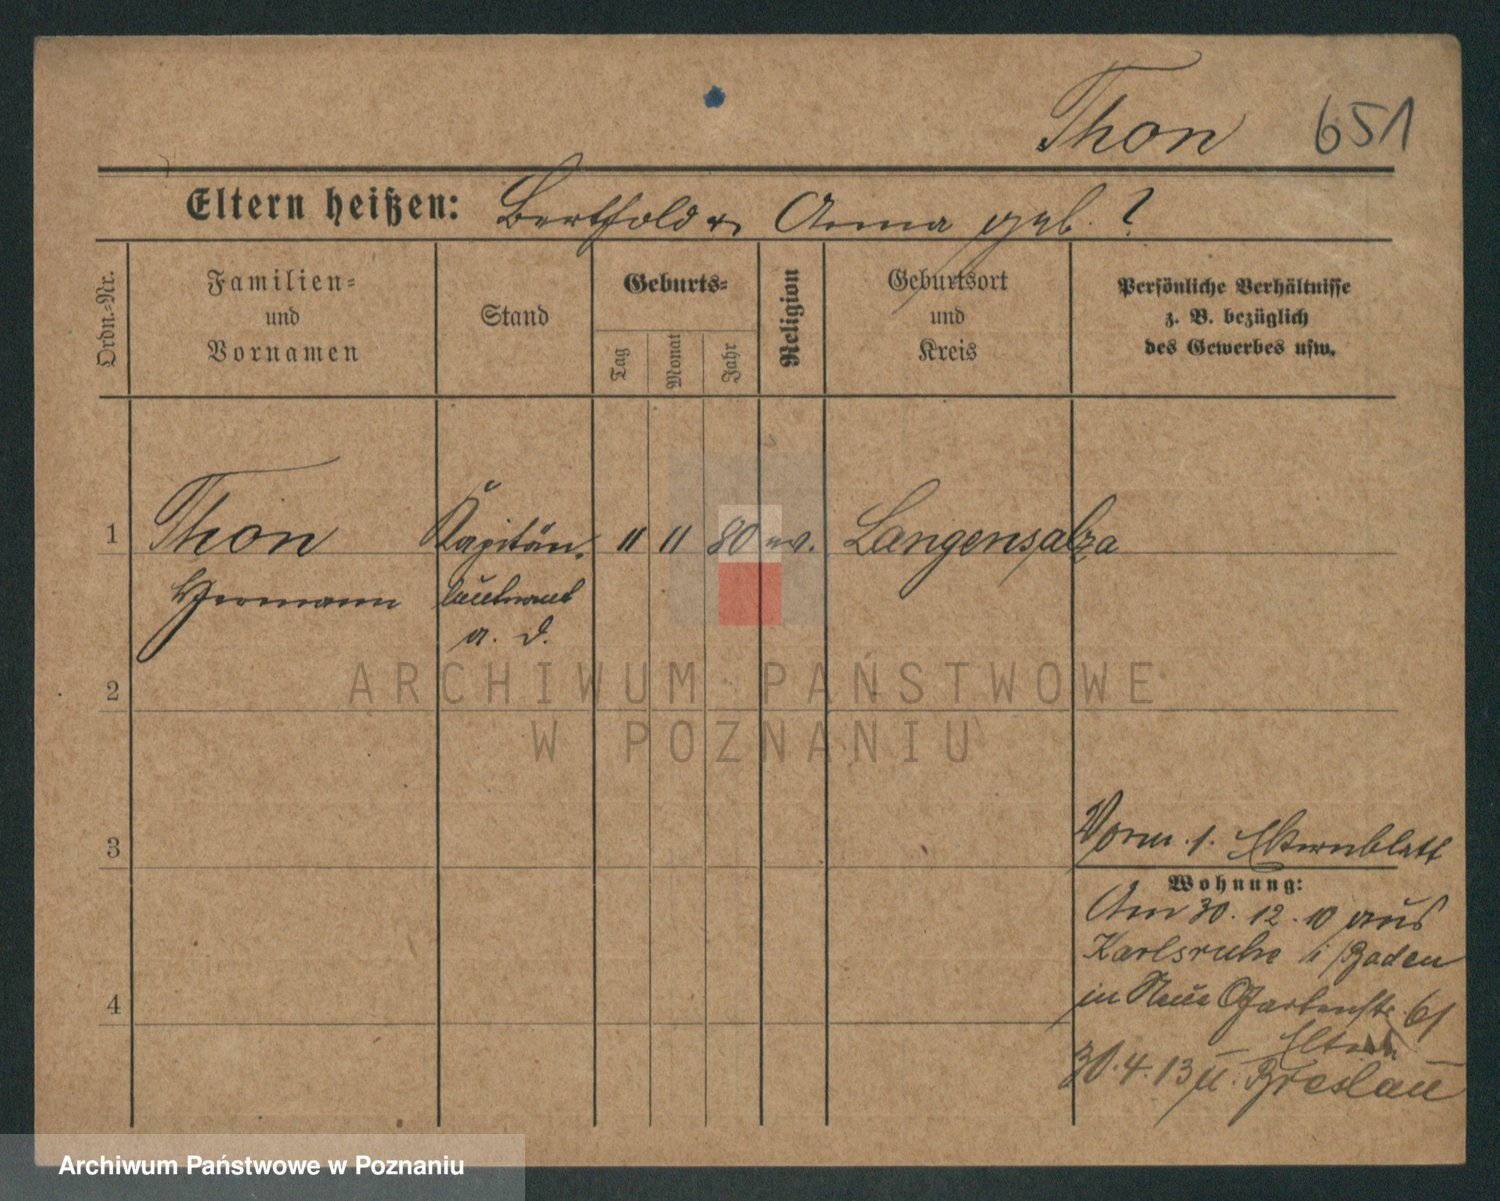 Thon 651
Eltern heißen: Berthold u. Anna geb. ?
Ordn.-Nr.
Familien=
und
Vornamen
Stand
Geburts=
Tag
Monat
Jahr
Religion
Geburtsort
und
Kreis
Persönliche Verhältnisse
z. B. bezüglich
des Gewerbes usw.
1 Thon Kapitän- 11 11 80 ev. Langensalza
Hermann leutnant
a. D.
2
3
4
Vorm. 1. Elternblatt
Wohnung:
Am 30. 12. 10 aus
Karlsruhe i/Baden
in Neue Gartenstr. 61
Eltern
30.4.13 u. Breslau
ARCHIWUM PAŃSTWOWE
W POZNANIU
Archiwum Państwowe w Poznaniu